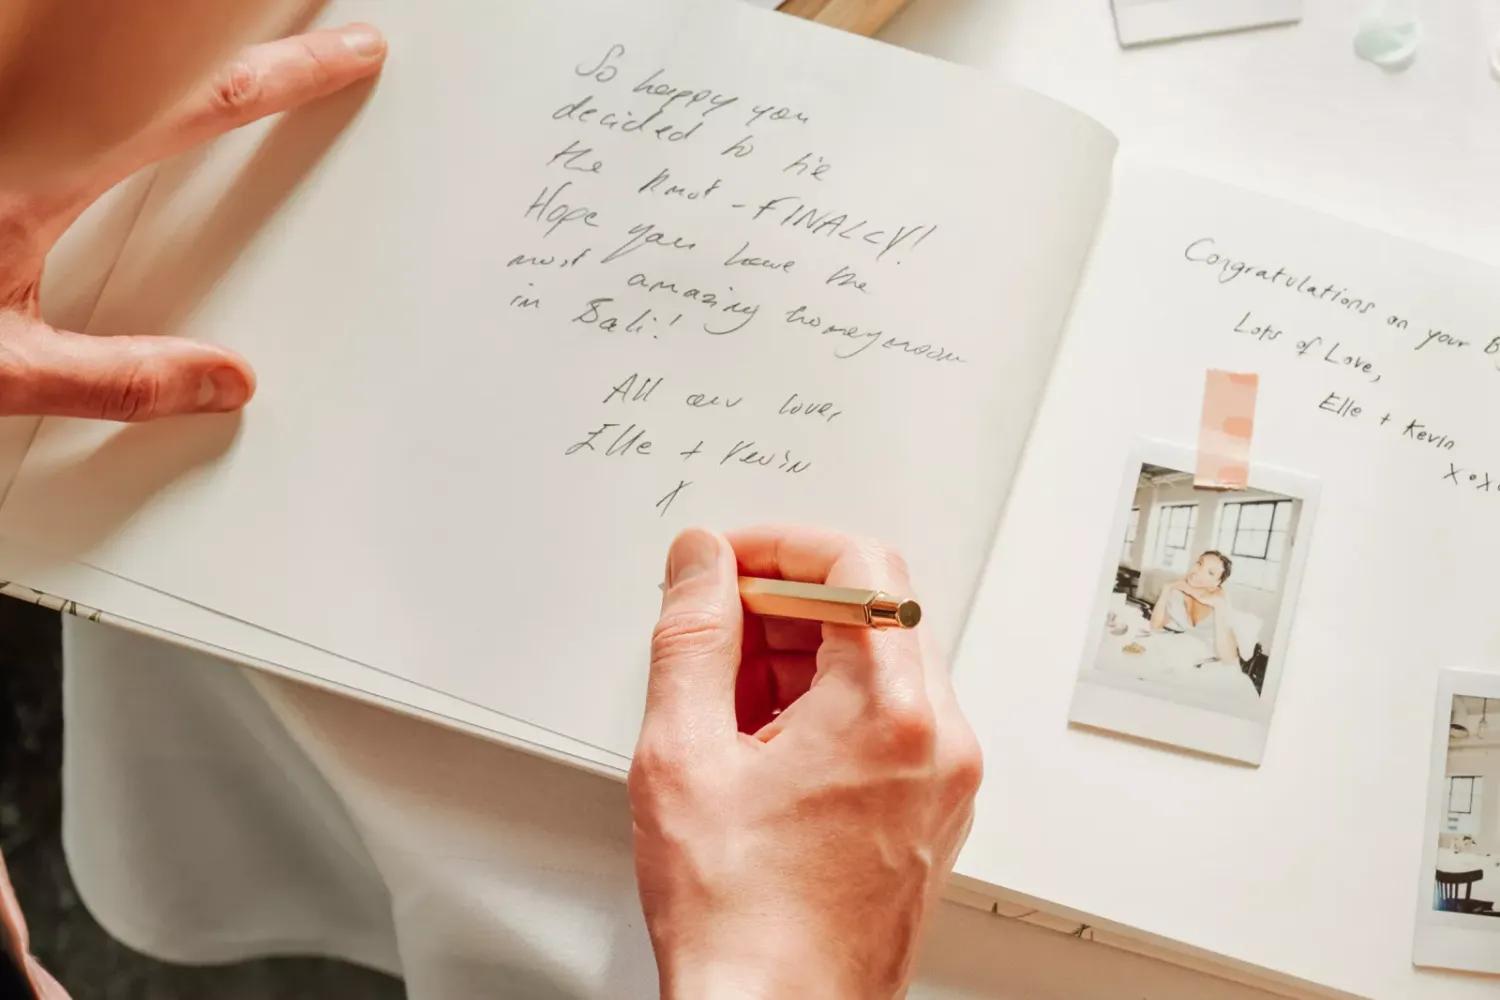 So happy you
decided to tie
the knot - FINALLY!
Hope you have the
most amazing honeymoon
in Bali!
All our love,
Elle + Kevin
X
Congratulations on your B
Lots of Love,
Elle + Kevin
XoX